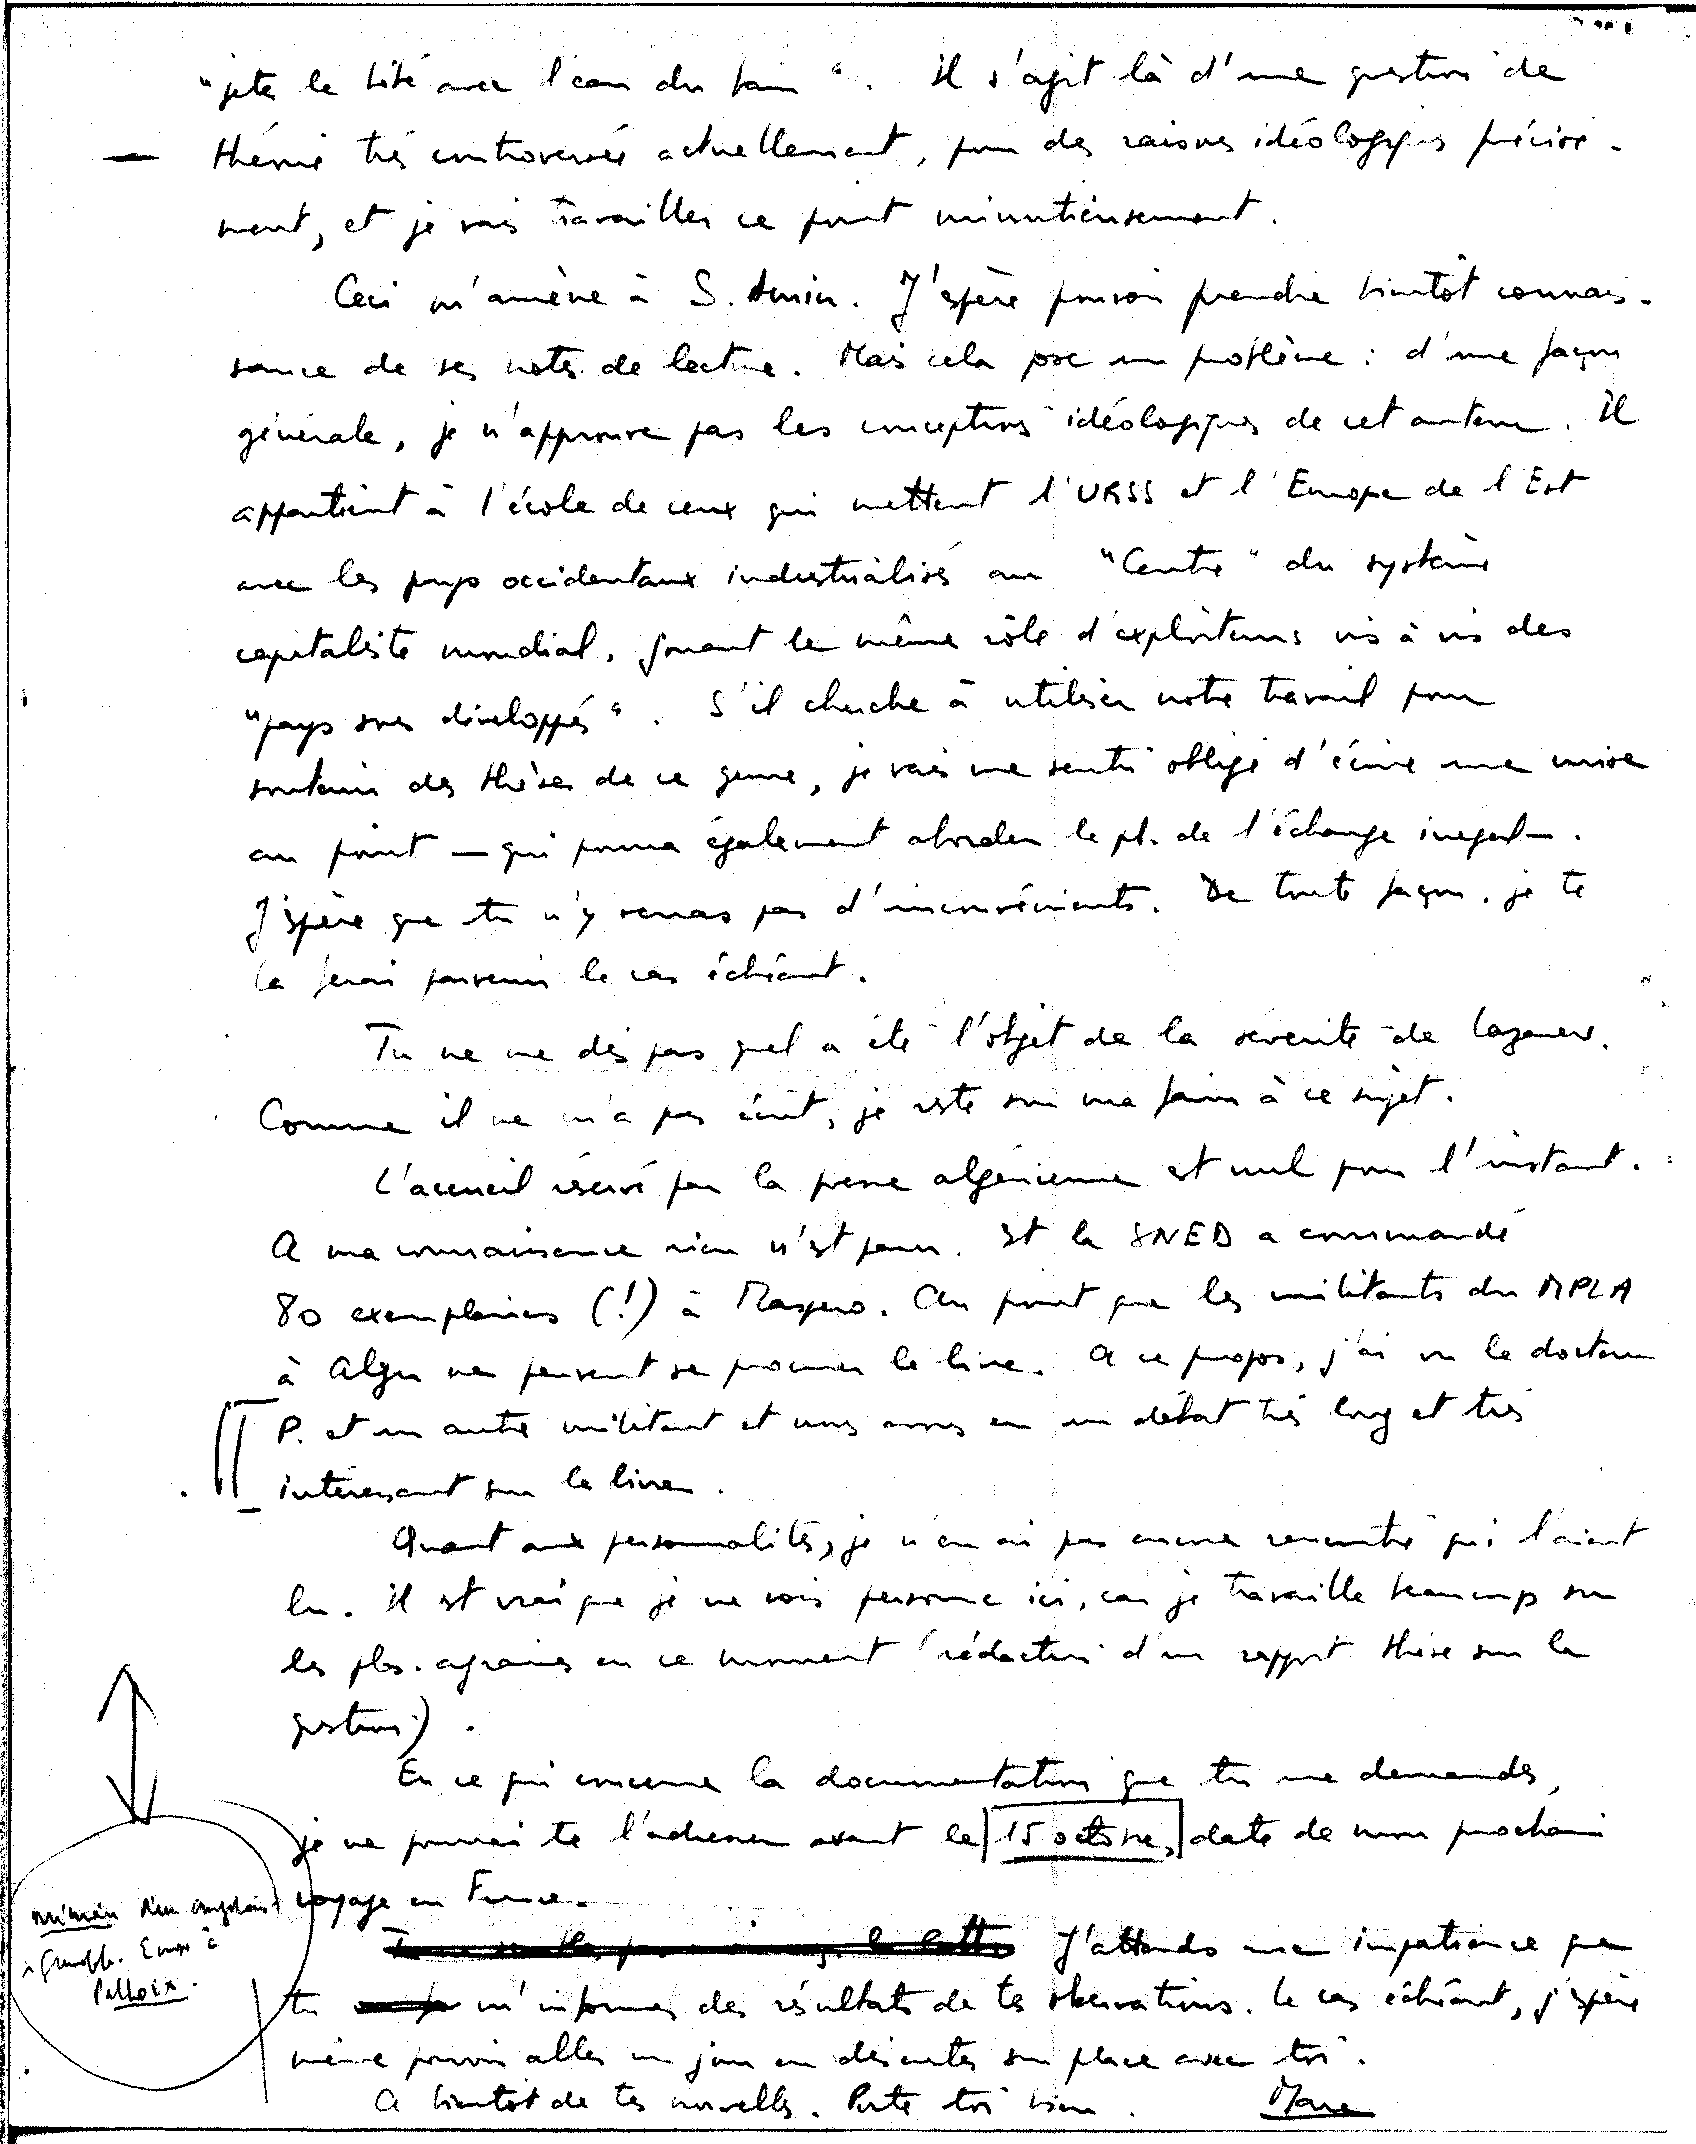 "jeter le bébé avec l'eau du bain". Il s'agit là d'une question de
théorie très controversée actuellement, pour des raisons idéologiques précisé-
ment, et je vais travailler ce point minutieusement.
Ceci m'amène à S. Amin. J'espère pouvoir prendre bientôt connais-
sance de ses notes de lecture. Mais cela pose un problème : d'une façon
générale, je n'approuve pas les conceptions idéologiques de cet auteur. Il
appartient à l'école de ceux qui mettent l'URSS et l'Europe de l'Est
avec les pays occidentaux industrialisés au "Centre" du système
capitaliste mondial, jouant le même rôle d'exploiteurs vis à vis des
"pays sous développés". S'il cherche à utiliser notre travail pour
soutenir des thèses de ce genre, je vais me sentir obligé d'écrire une mise
au point — qui pourra également aborder le pb. de l'échange inégal —.
J'espère que tu n'y verras pas d'inconvénients. De toute façon, je te
la ferai parvenir le cas échéant.
Tu ne me dis pas quel a été l'objet de la sévérité de Lazarev.
Comme il ne m'a pas écrit, je reste sur ma faim à ce sujet.
L'accueil réservé par la presse algérienne est nul pour l'instant.
A ma connaissance rien n'est paru. Et la SNED a commandé
80 exemplaires (!) à Maspero. Au point que les militants du MPLA
à Alger ne peuvent se procurer le livre. A ce propos, j'ai vu le docteur
P. et un autre militant et nous avons eu un débat très long et très
intéressant sur le livre.
Quant aux personnalités, je n'en ai pas encore rencontré qui l'aient
lu. Il est vrai que je ne vois personne ici, car je travaille beaucoup sur
les pbs. agraires en ce moment (rédaction d'un rapport thèse sur la
question).
En ce qui concerne la documentation que tu me demandes,
je ne pourrai te l'adresser avant le 15 octobre, date de mon prochain
voyage en France.
J'attends avec impatience que
tu m'informes des résultats de tes observations. Le cas échéant, j'espère
même pouvoir aller un jour en discuter sur place avec toi.
A bientôt de tes nouvelles. Porte toi bien. Marc
d'un anglais
à Grenoble. Envoi à
Palloix.